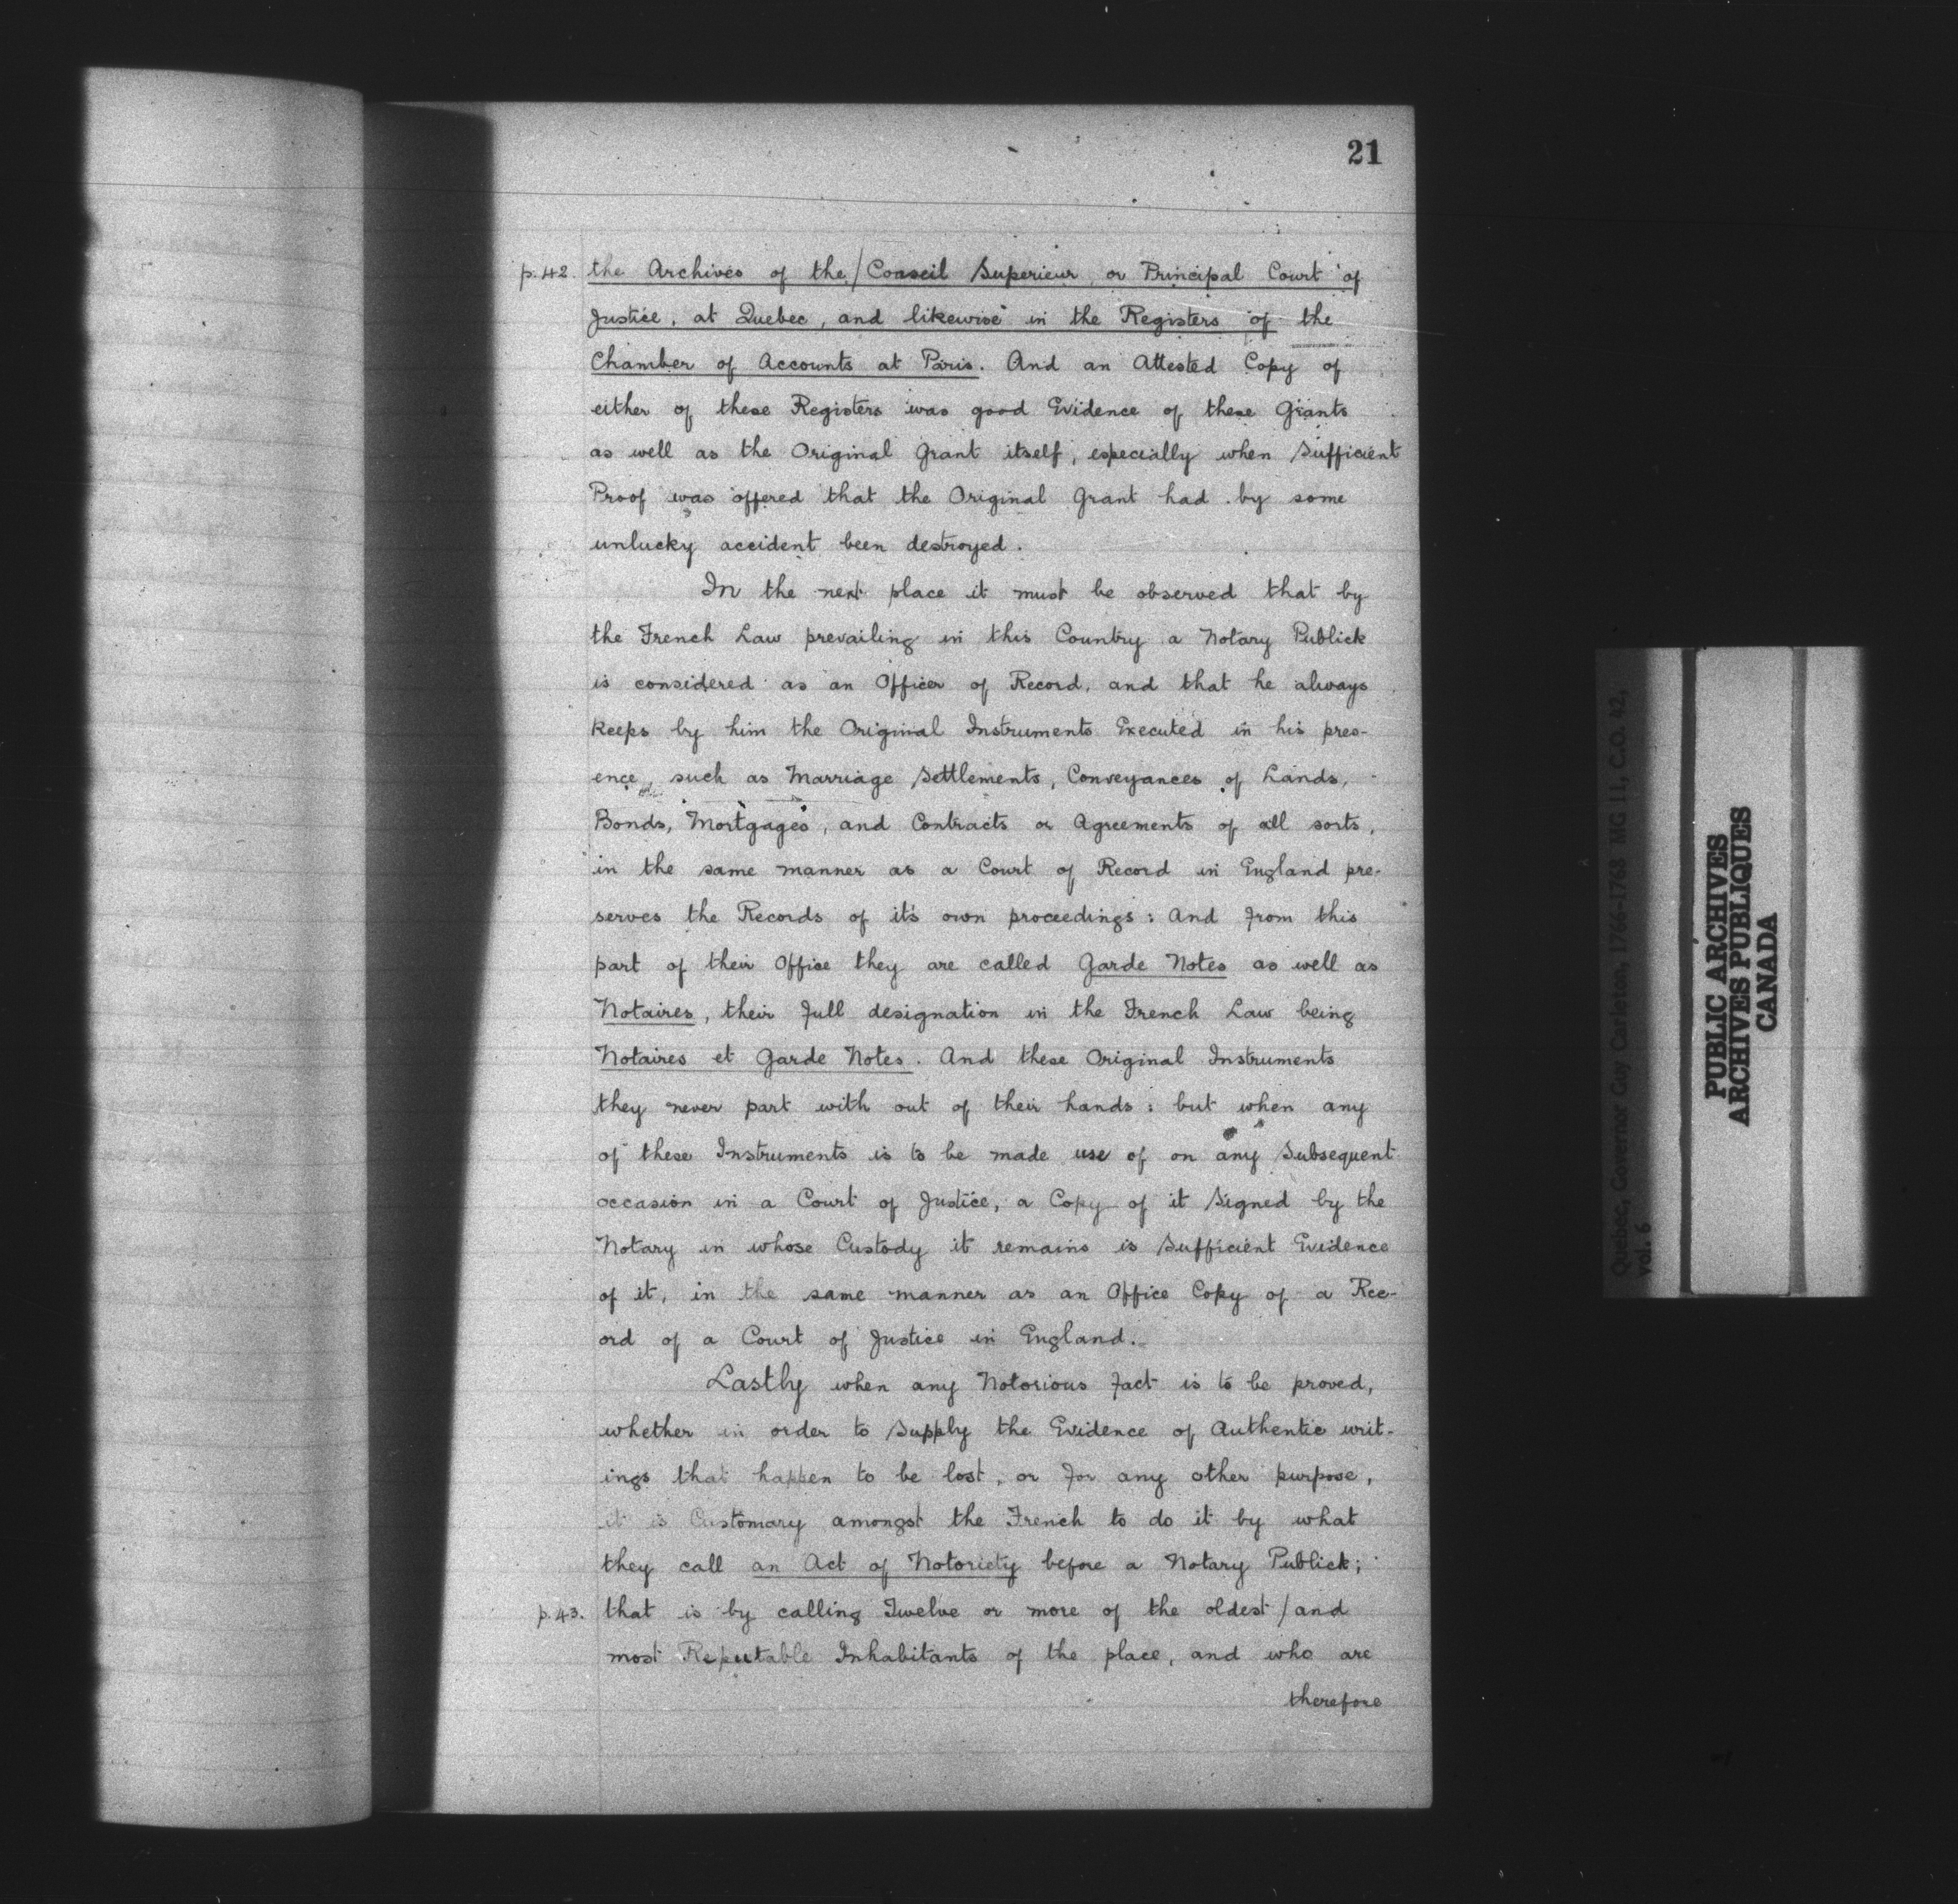 21
p.42. the Archives of the / Conseil Superieur or Principal Court of
Justice, at Quebec, and likewise in the Registers of the
Chamber of Accounts at Paris. And an Attested Copy of
either of these Registers was good Evidence of these Grants
as well as the Original Grant itself, especially when Sufficient
Proof was offered that the Original Grant had by some
unlucky accident been destroyed.
In the next place it must be observed that by
the French Law prevailing in this Country a Notary Publick
is considered as an Officer of Record, and that he always
keeps by him the Original Instruments Executed in his pres-
ence, such as Marriage Settlements, Conveyances of Lands,
Bonds, Mortgages, and Contracts or Agreements of all sorts,
in the same manner as a Court of Record in England pre-
serves the Records of it's own proceedings: And from this
part of their Office they are called Garde Notes as well as
Notaires, their full designation in the French Law being
Notaires et Garde Notes. And these Original Instruments
they never part with out of their hands: but when any
of these Instruments is to be made use of on any Subsequent
occasion in a Court of Justice, a Copy of it Signed by the
Notary in whose Custody it remains is Sufficient Evidence
of it, in the same manner as an Office Copy of a Rec-
ord of a Court of Justice in England.
Lastly when any Notorious fact is to be proved,
whether in order to Supply the Evidence of Authentic writ-
ings that happen to be lost, or for any other purpose,
it is Customary amongst the French to do it by what
they call an Act of Notoriety before a Notary Publick;
p.43. that is by calling Twelve or more of the oldest / and
most Reputable Inhabitants of the place, and who are
therefore
Quebec, Governor Guy Carleton, 1766-1768 MG 11, C.O. 42,
vol. 6
PUBLIC ARCHIVES
ARCHIVES PUBLIQUES
CANADA